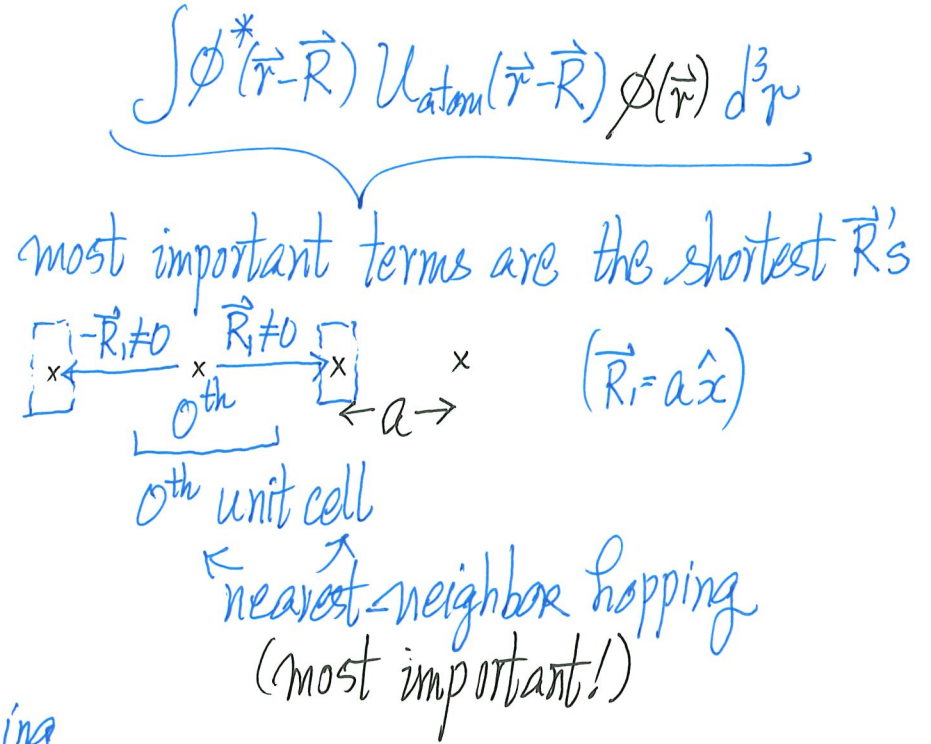 ∫ϕ*(r⃗-R⃗) U_atom(r⃗-R⃗) ϕ(r⃗) d³r
most important terms are the shortest R⃗'s
-R⃗₁≠0 R⃗₁≠0
x x x x (R⃗₁=ax̂)
0th ←a→
0th unit cell
nearest-neighbor hopping
(most important!)
ing